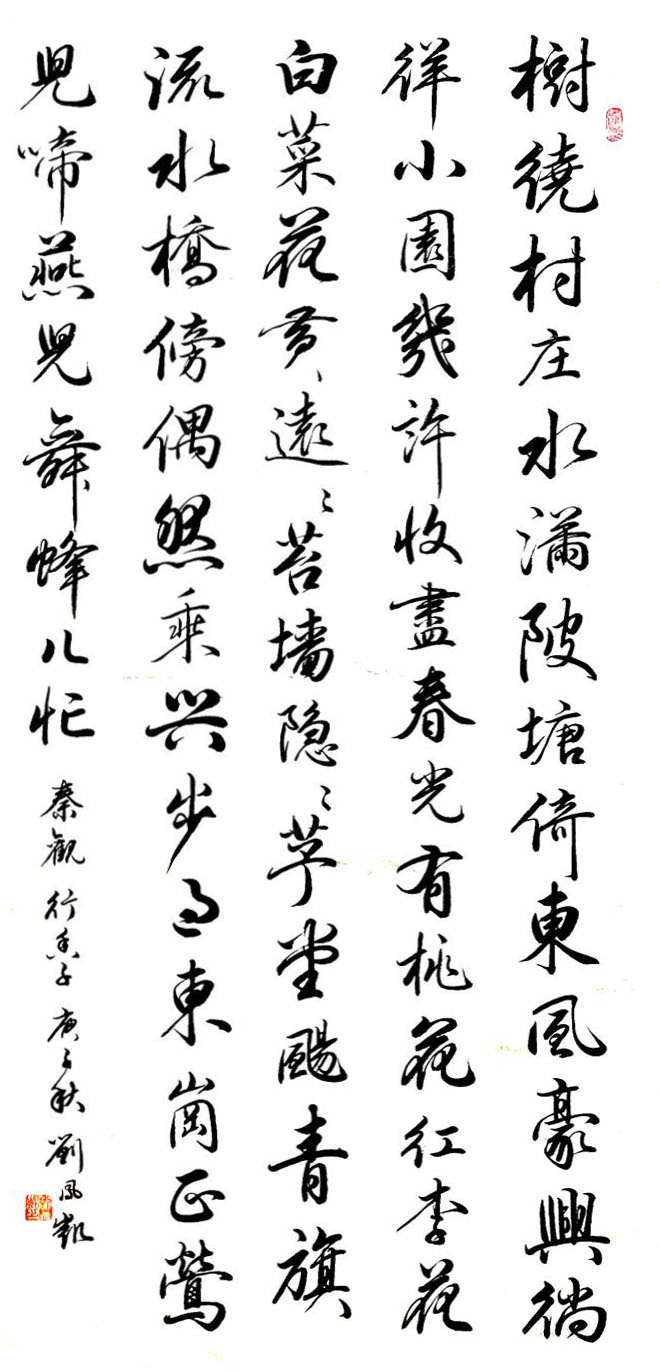 樹繞村庄水滿陂塘倚東風豪興徜
徉小園幾許收盡春光有桃花红李花
白菜花黄遠々苔墙隐々茅堂颺青旗
流水橋傍偶然乘兴步过東崗正鶯
兒啼燕兒舞蜂儿忙 秦觀行香子 庚子秋 劉鳳